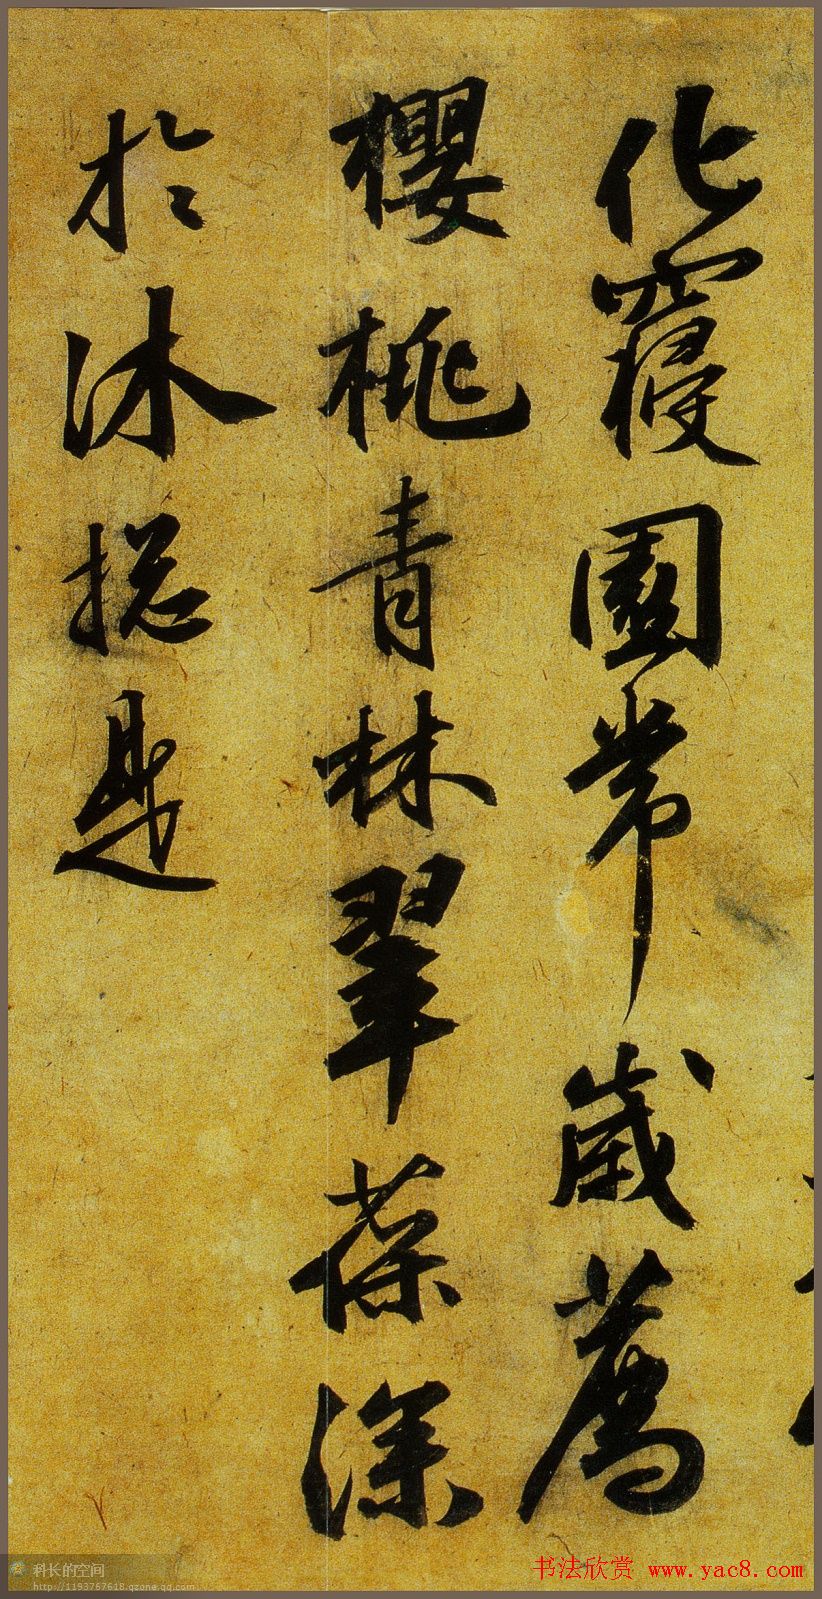 化寢園常歲薦
櫻桃青林翠葆深
於沐摠是
科长的空间
http://1193767618.qzone.qq.com
书法欣赏 www.yac8.com